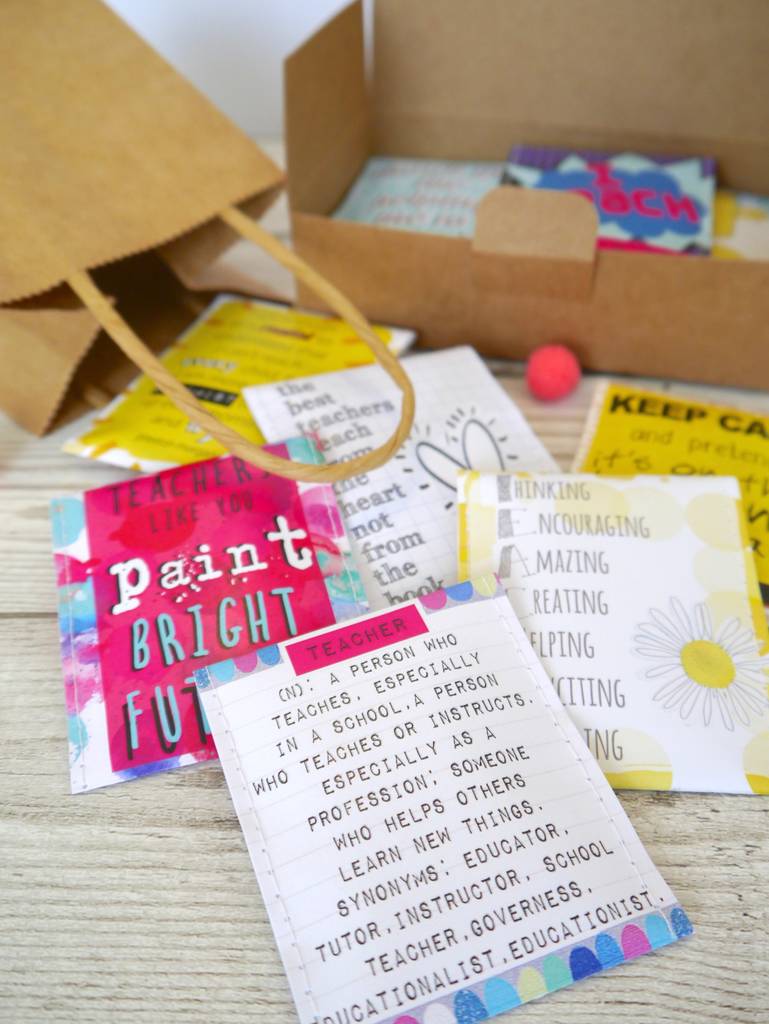 I
TEACH
KEEP CA
and preten
it's on th
the
best
teachers
teach
from
the
heart
not
from
the
book
TEACHERS
LIKE YOU
paint
BRIGHT
FUT
THINKING
ENCOURAGING
AMAZING
CREATING
HELPING
CITING
ING
TEACHER
(N): A PERSON WHO
TEACHES, ESPECIALLY
IN A SCHOOL, A PERSON
WHO TEACHES OR INSTRUCTS.
ESPECIALLY AS A
PROFESSION; SOMEONE
WHO HELPS OTHERS
LEARN NEW THINGS.
SYNONYMS: EDUCATOR,
TUTOR, INSTRUCTOR, SCHOOL
TEACHER, GOVERNESS,
EDUCATIONALIST, EDUCATIONIST.